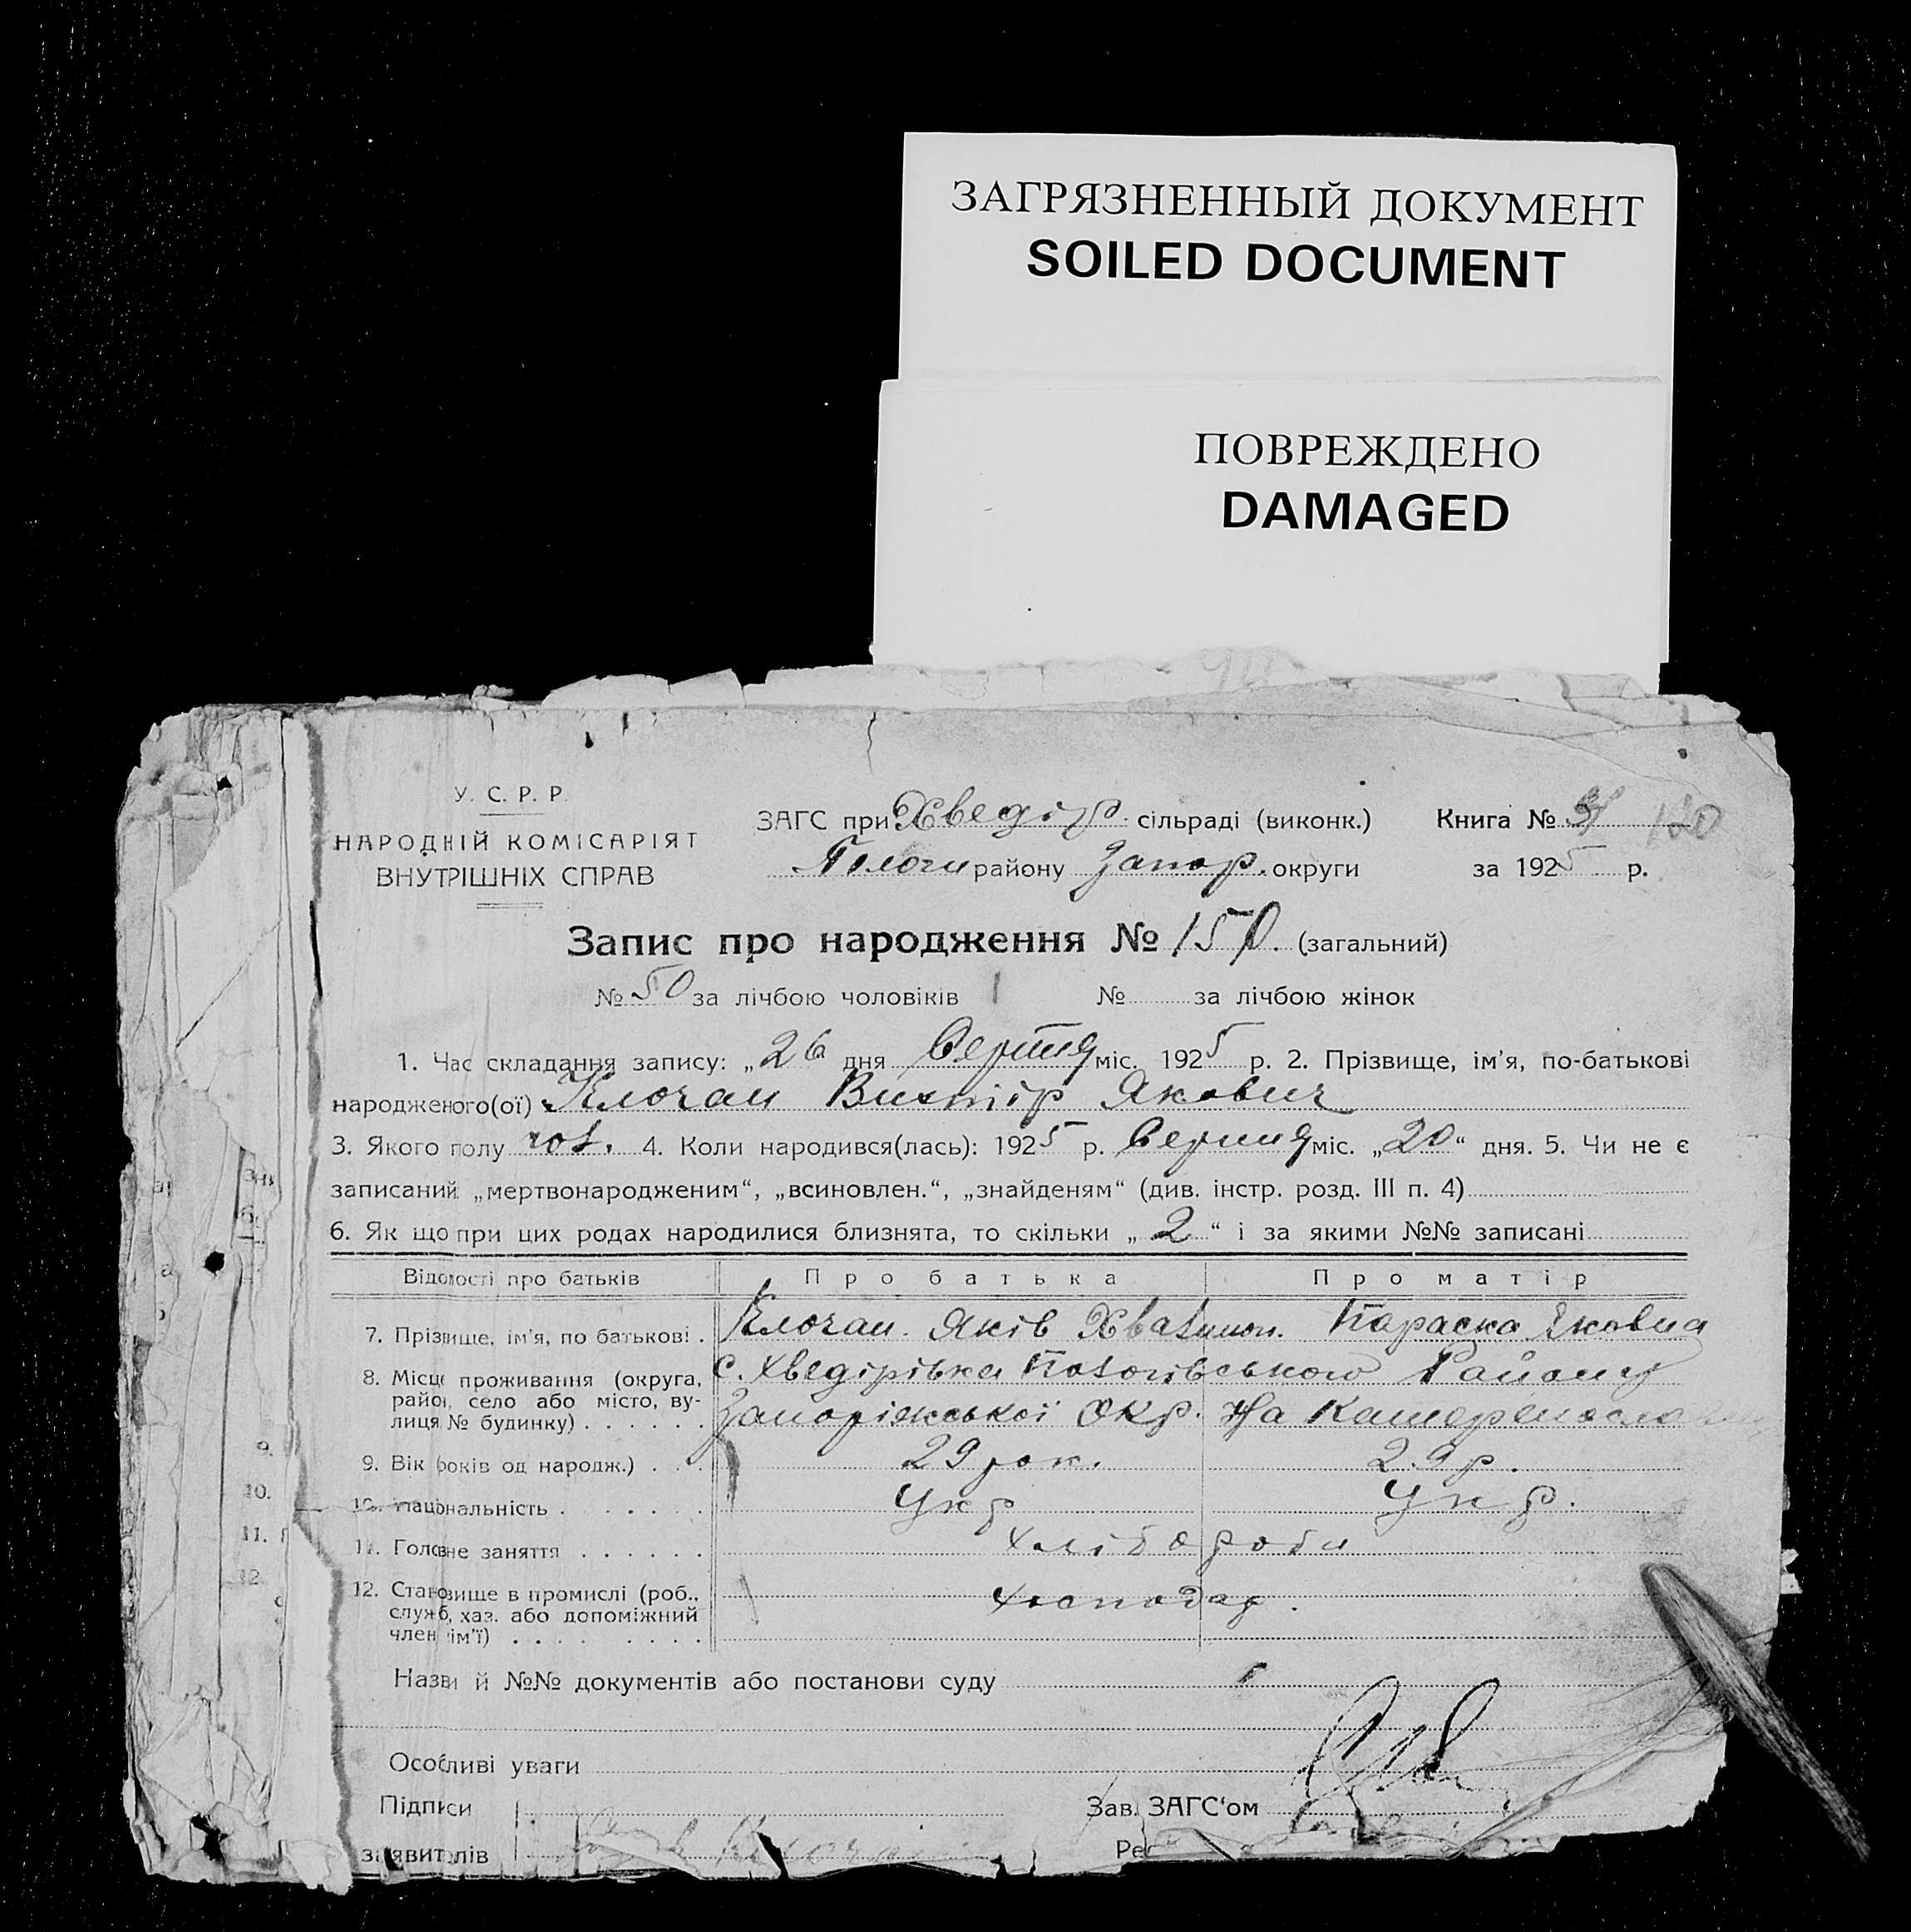 ЗАГРЯЗНЕННЫЙ ДОКУМЕНТ
SOILED DOCUMENT
ПОВРЕЖДЕНО
DAMAGED
У. С. Р. Р.
НАРОДНІЙ КОМІСАРІЯТ
ВНУТРІШНІХ СПРАВ
ЗАГС при Хведір. сільраді (виконк.) Книга № 120
Пологи району Запор. округи за 1925 р.
Запис про народження № 150. (загальний)
№ 50 за лічбою чоловіків № за лічбою жінок
1. Час складання запису: „26 дня Серпня міс. 1925 р. 2. Прізвище, ім'я, по-батькові
народженого(ої) Клочан Виктір Якович
3. Якого полу чол. 4. Коли народився(лась): 1925 р. Серпня міс. „20“ дня. 5. Чи не є
записаний „мертвонародженим“, „всиновлен.“, „знайденям“ (див. інстр. розд. III п. 4)
6. Як що при цих родах народилися близнята, то скільки „2“ і за якими №№ записані
Відомості про батьків Про батька Про матір
7. Прізвище, ім'я, по батькові . Клочан Яків Параска Яковна
8. Місце проживання (округа, район, село або місто, вулиця № будинку) с. Хведірівка Пологівського Району
Запоріжської Окр. На
9. Вік (років од народж.) 29 рок. 29 р.
10. Національність Укр Укр.
11. Головне заняття хлібороби
12. Становище в промислі (роб., служб, хаз. або допоміжний член сім'ї) господар.
Назви й №№ документів або постанови суду
Особливі уваги
Підписи
заявителів
Зав. ЗАГС'ом
Ре